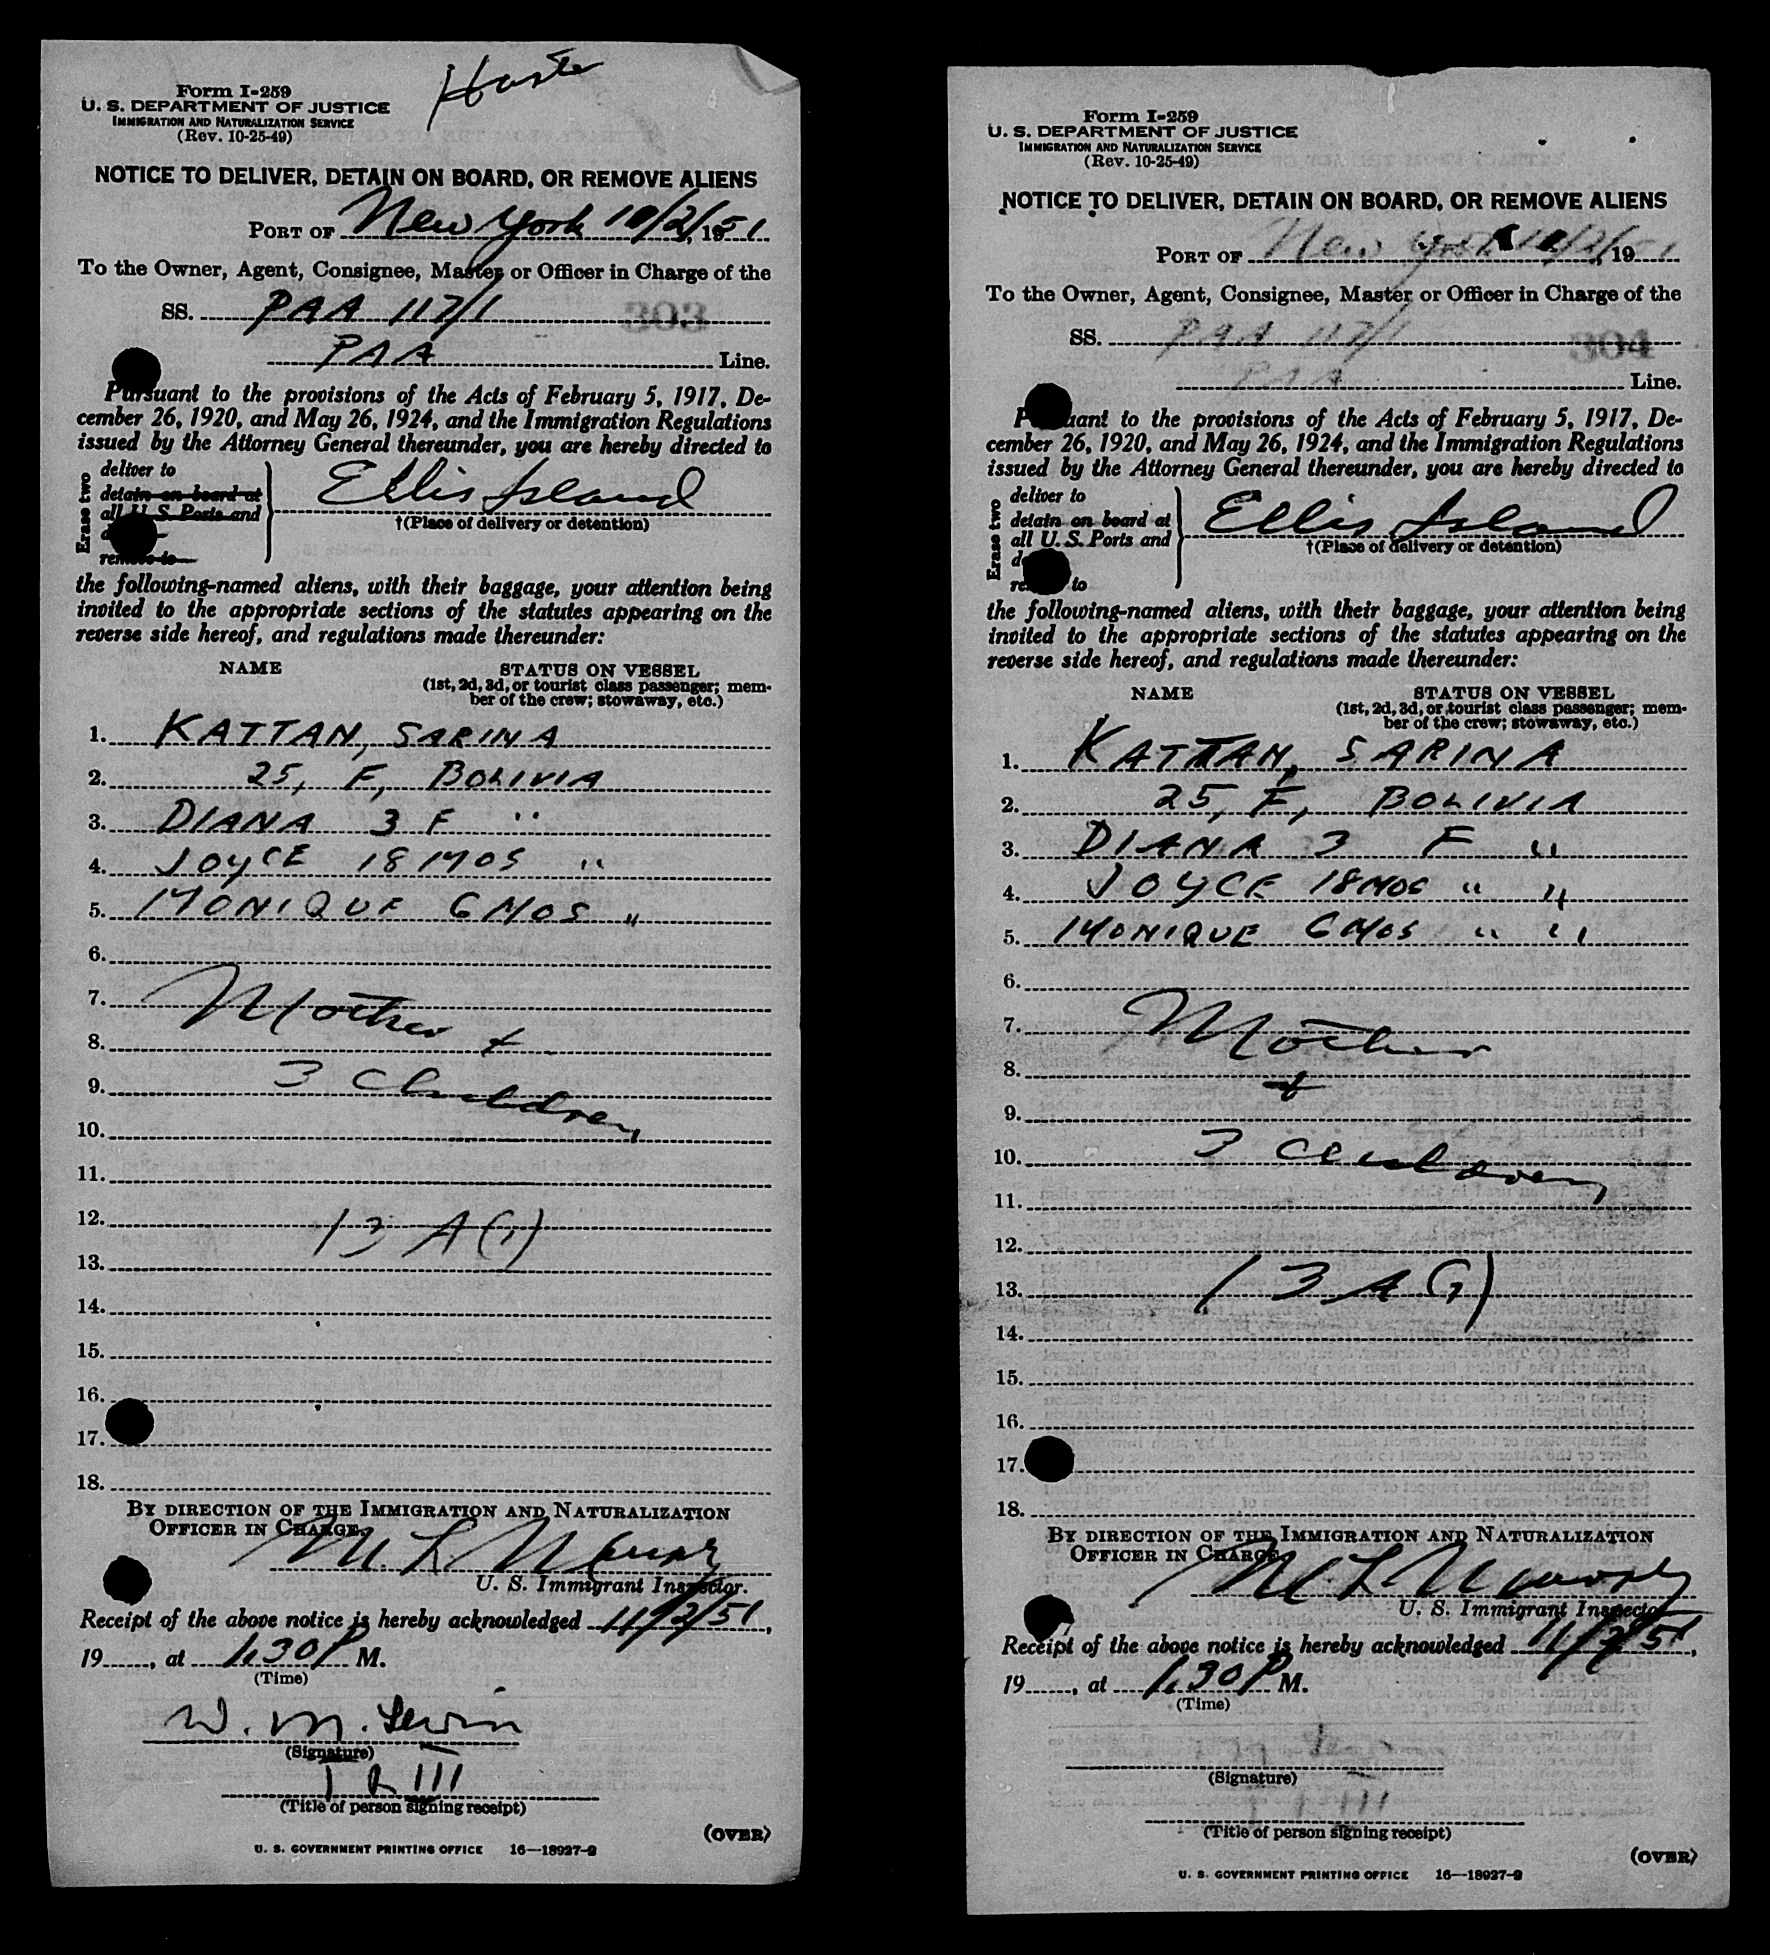 Form I-259
U. S. DEPARTMENT OF JUSTICE
IMMIGRATION AND NATURALIZATION SERVICE
(Rev. 10-25-49)
NOTICE TO DELIVER, DETAIN ON BOARD, OR REMOVE ALIENS
PORT OF New York 10/2/, 1951
To the Owner, Agent, Consignee, Master or Officer in Charge of the
SS. PAA 117/1
303
PAA Line.
Pursuant to the provisions of the Acts of February 5, 1917, De-
cember 26, 1920, and May 26, 1924, and the Immigration Regulations
issued by the Attorney General thereunder, you are hereby directed to
Erase two
deliver to
detain on board at
all U. S. Ports and
remove to
Ellis Island
†(Place of delivery or detention)
the following-named aliens, with their baggage, your attention being
invited to the appropriate sections of the statutes appearing on the
reverse side hereof, and regulations made thereunder:
NAME STATUS ON VESSEL
(1st, 2d, 3d, or tourist class passenger; mem-
ber of the crew; stowaway, etc.)
1. KATTAN, SARINA
2. 25, F, BOLIVIA
3. DIANA 3 F "
4. JOYCE 18 MOS "
5. MONIQUE 6 MOS "
6.
7. Mother
8. +
9. 3 Children
10.
11.
12. 13 A(1)
13.
14.
15.
16.
17.
18.
BY DIRECTION OF THE IMMIGRATION AND NATURALIZATION
OFFICER IN CHARGE.
M. L.
U. S. Immigrant Inspector.
Receipt of the above notice is hereby acknowledged 11/2/51,
19, at 1:30 P M.
(Time)
W. M. Lewin
(Signature)
III
(Title of person signing receipt)
(OVER)
U. S. GOVERNMENT PRINTING OFFICE 16—18927-2
Form I-259
U. S. DEPARTMENT OF JUSTICE
IMMIGRATION AND NATURALIZATION SERVICE
(Rev. 10-25-49)
NOTICE TO DELIVER, DETAIN ON BOARD, OR REMOVE ALIENS
PORT OF New York 10/2/, 1951
To the Owner, Agent, Consignee, Master or Officer in Charge of the
SS. PAA 117/1
304
PAA Line.
Pursuant to the provisions of the Acts of February 5, 1917, De-
cember 26, 1920, and May 26, 1924, and the Immigration Regulations
issued by the Attorney General thereunder, you are hereby directed to
Erase two
deliver to
detain on board at
all U. S. Ports and
to
Ellis Island
†(Place of delivery or detention)
the following-named aliens, with their baggage, your attention being
invited to the appropriate sections of the statutes appearing on the
reverse side hereof, and regulations made thereunder:
NAME STATUS ON VESSEL
(1st, 2d, 3d, or tourist class passenger; mem-
ber of the crew; stowaway, etc.)
1. KATTAN, SARINA
2. 25, F, BOLIVIA
3. DIANA 3 F "
4. JOYCE 18 MOS " "
5. MONIQUE 6 MOS " "
6.
7. Mother
8. +
9.
10. 3 Children
11.
12.
13. 13 A(1)
14.
15.
16.
17.
18.
BY DIRECTION OF THE IMMIGRATION AND NATURALIZATION
OFFICER IN CHARGE.
M. L.
U. S. Immigrant Inspector.
Receipt of the above notice is hereby acknowledged 11/2/51,
19, at 1:30 P M.
(Time)
(Signature)
III
(Title of person signing receipt)
(OVER)
U. S. GOVERNMENT PRINTING OFFICE 16—18927-2